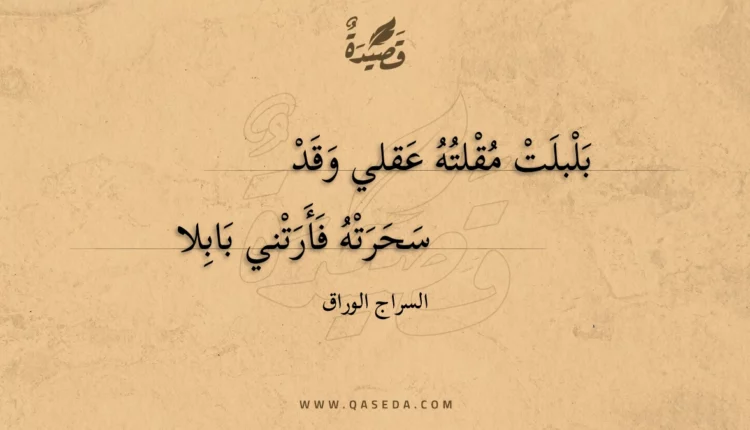 قَصِيْدَةٌ
بَلْبلَتْ مُقْلتُهُ عَقلي وَقَدْ
سَحَرَتْهُ فَأَرَتْني بَابِلا
السراج الوراق
WWW.QASEDA.COM